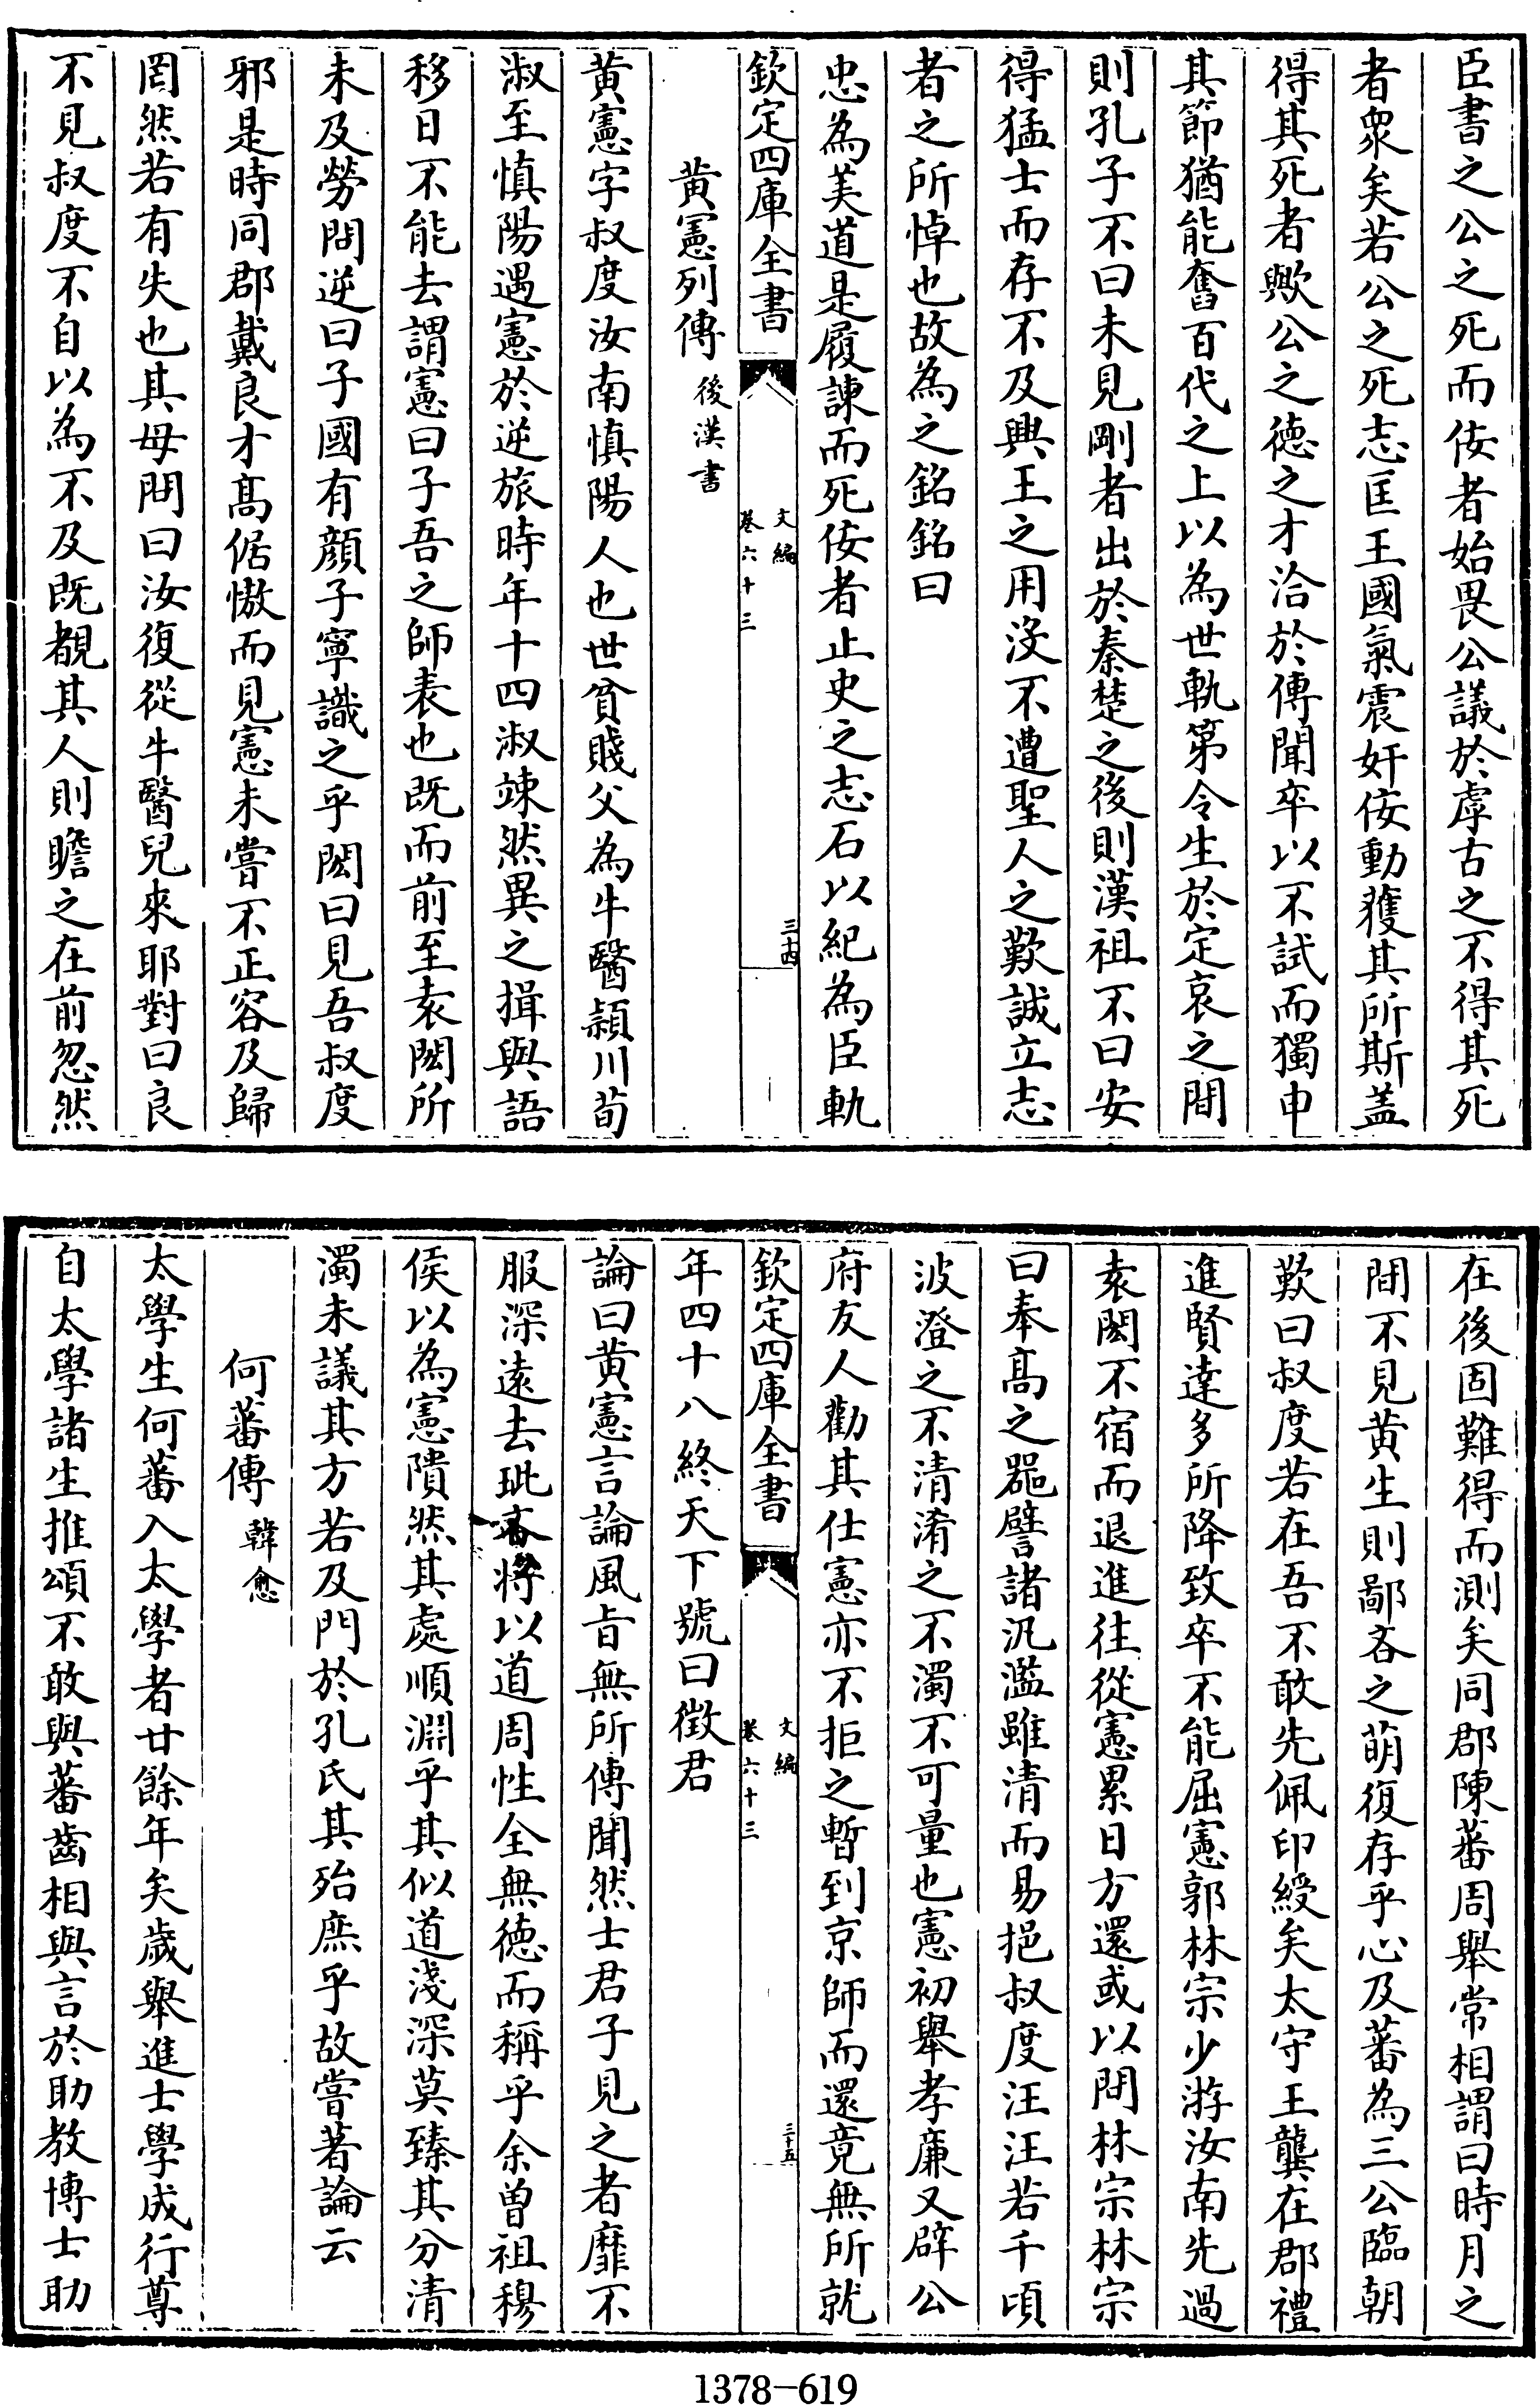 臣書之公之死而佞者始畏公議於虖古之不得其死
者衆矣若公之死志匡王國氣震奸佞動獲其所斯盖
得其死者歟公之德之才洽於傳聞卒以不試而獨申
其節猶能奮百代之上以為世軌第令生於定哀之間
則孔子不曰未見剛者出於秦楚之後則漢祖不曰安
得猛士而存不及興王之用沒不遭聖人之歎誠立志
者之所悼也故為之銘銘曰
忠為美道是履諫而死佞者止史之志石以紀為臣軌
欽定四庫全書
文編
卷六十三
三十四
黄憲列傳 後漢書
黄憲字叔度汝南慎陽人也世貧賤父為牛醫潁川荀
淑至慎陽遇憲於逆旅時年十四淑竦然異之揖與語
移日不能去謂憲曰子吾之師表也既而前至袁閎所
未及勞問逆曰子國有顔子寧識之乎閎曰見吾叔度
邪是時同郡戴良才高倨慠而見憲未嘗不正容及歸
罔然若有失也其母問曰汝復從牛醫兒來耶對曰良
不見叔度不自以為不及既覩其人則瞻之在前忽然
在後固難得而測矣同郡陳蕃周舉常相謂曰時月之
間不見黄生則鄙吝之萌復存乎心及蕃為三公臨朝
歎曰叔度若在吾不敢先佩印綬矣太守王龔在郡禮
進賢達多所降致卒不能屈憲郭林宗少游汝南先過
袁閎不宿而退進往從憲累日方還或以問林宗林宗
曰奉高之器譬諸汎濫雖清而易挹叔度汪汪若千頃
波澄之不清淆之不濁不可量也憲初舉孝廉又辟公
府友人勸其仕憲亦不拒之暫到京師而還竟無所就
欽定四庫全書
文編
卷六十三
三十五
年四十八終天下號曰徴君
論曰黄憲言論風旨無所傳聞然士君子見之者靡不
服深遠去玼吝將以道周性全無德而稱乎余曾祖穆
侯以為憲隤然其處順淵乎其似道淺深莫臻其分清
濁未議其方若及門於孔氏其殆庶乎故嘗著論云
何蕃傳 韓愈
太學生何蕃入太學者廿餘年矣歲舉進士學成行尊
自太學諸生推頌不敢與蕃齒相與言於助教博士助
1378-619